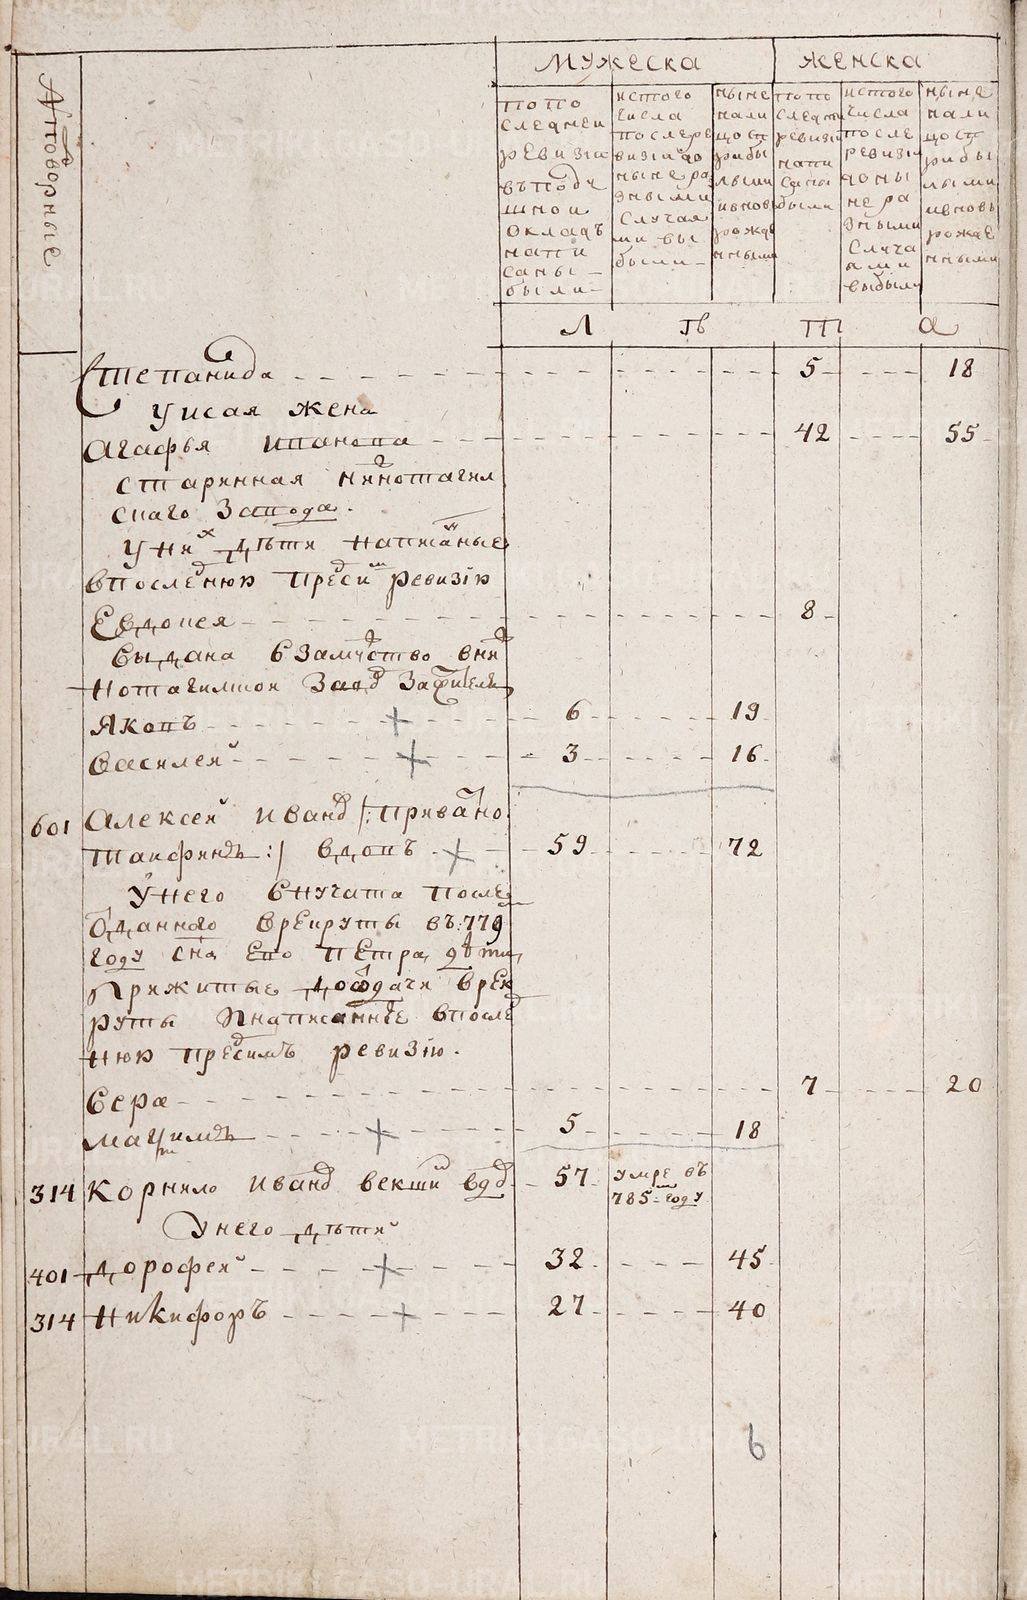 Мужеска женска
Адворные
попо
следней
ревизіи
въподу
шной
окладъ
напи
саны
были
истого
числа
послере
визіи до
ныне ра
зными
случая
ми вы
были
ныне
нали
цо съ
прибы
лыми
ивновь
рожде
нными
попо
следней
ревизіи
напи
саны
были
истого
числа
после
ревизіи
доны
не ра
зными
случа
ями
выбыли
ныне
нали
цо съ
прибы
лыми
ивновь
рожде
нными
Л ѣ т а
Степанида 5 18
У исая жена
Агафья иванова 42 55
старинная нижнотагил
скаго завода.
У них дѣти написаные
впоследнюю пред сим ревизію
Евдокея 8
выдана взамуство вниж
нотагилской завод
Яковъ + 6 19
Василей + 3 16
601 Алексей Иванов /: прива
:/ вдовъ + 59 72
У него внучата после
отданного врекруты въ 779
году сна ево Петра дѣти
прижитые доотдачи врек
руты инаписанные впослед
нюю пред симъ ревизію.
Вера 7 20
Максимъ + 5 18
314 Корнило Иванов векшин вдов 57 умре въ
785 году
У него дѣти
401 Дорофей + 32 45
314 Никифоръ + 27 40
6
METRIKI.GASO-URAL.RU